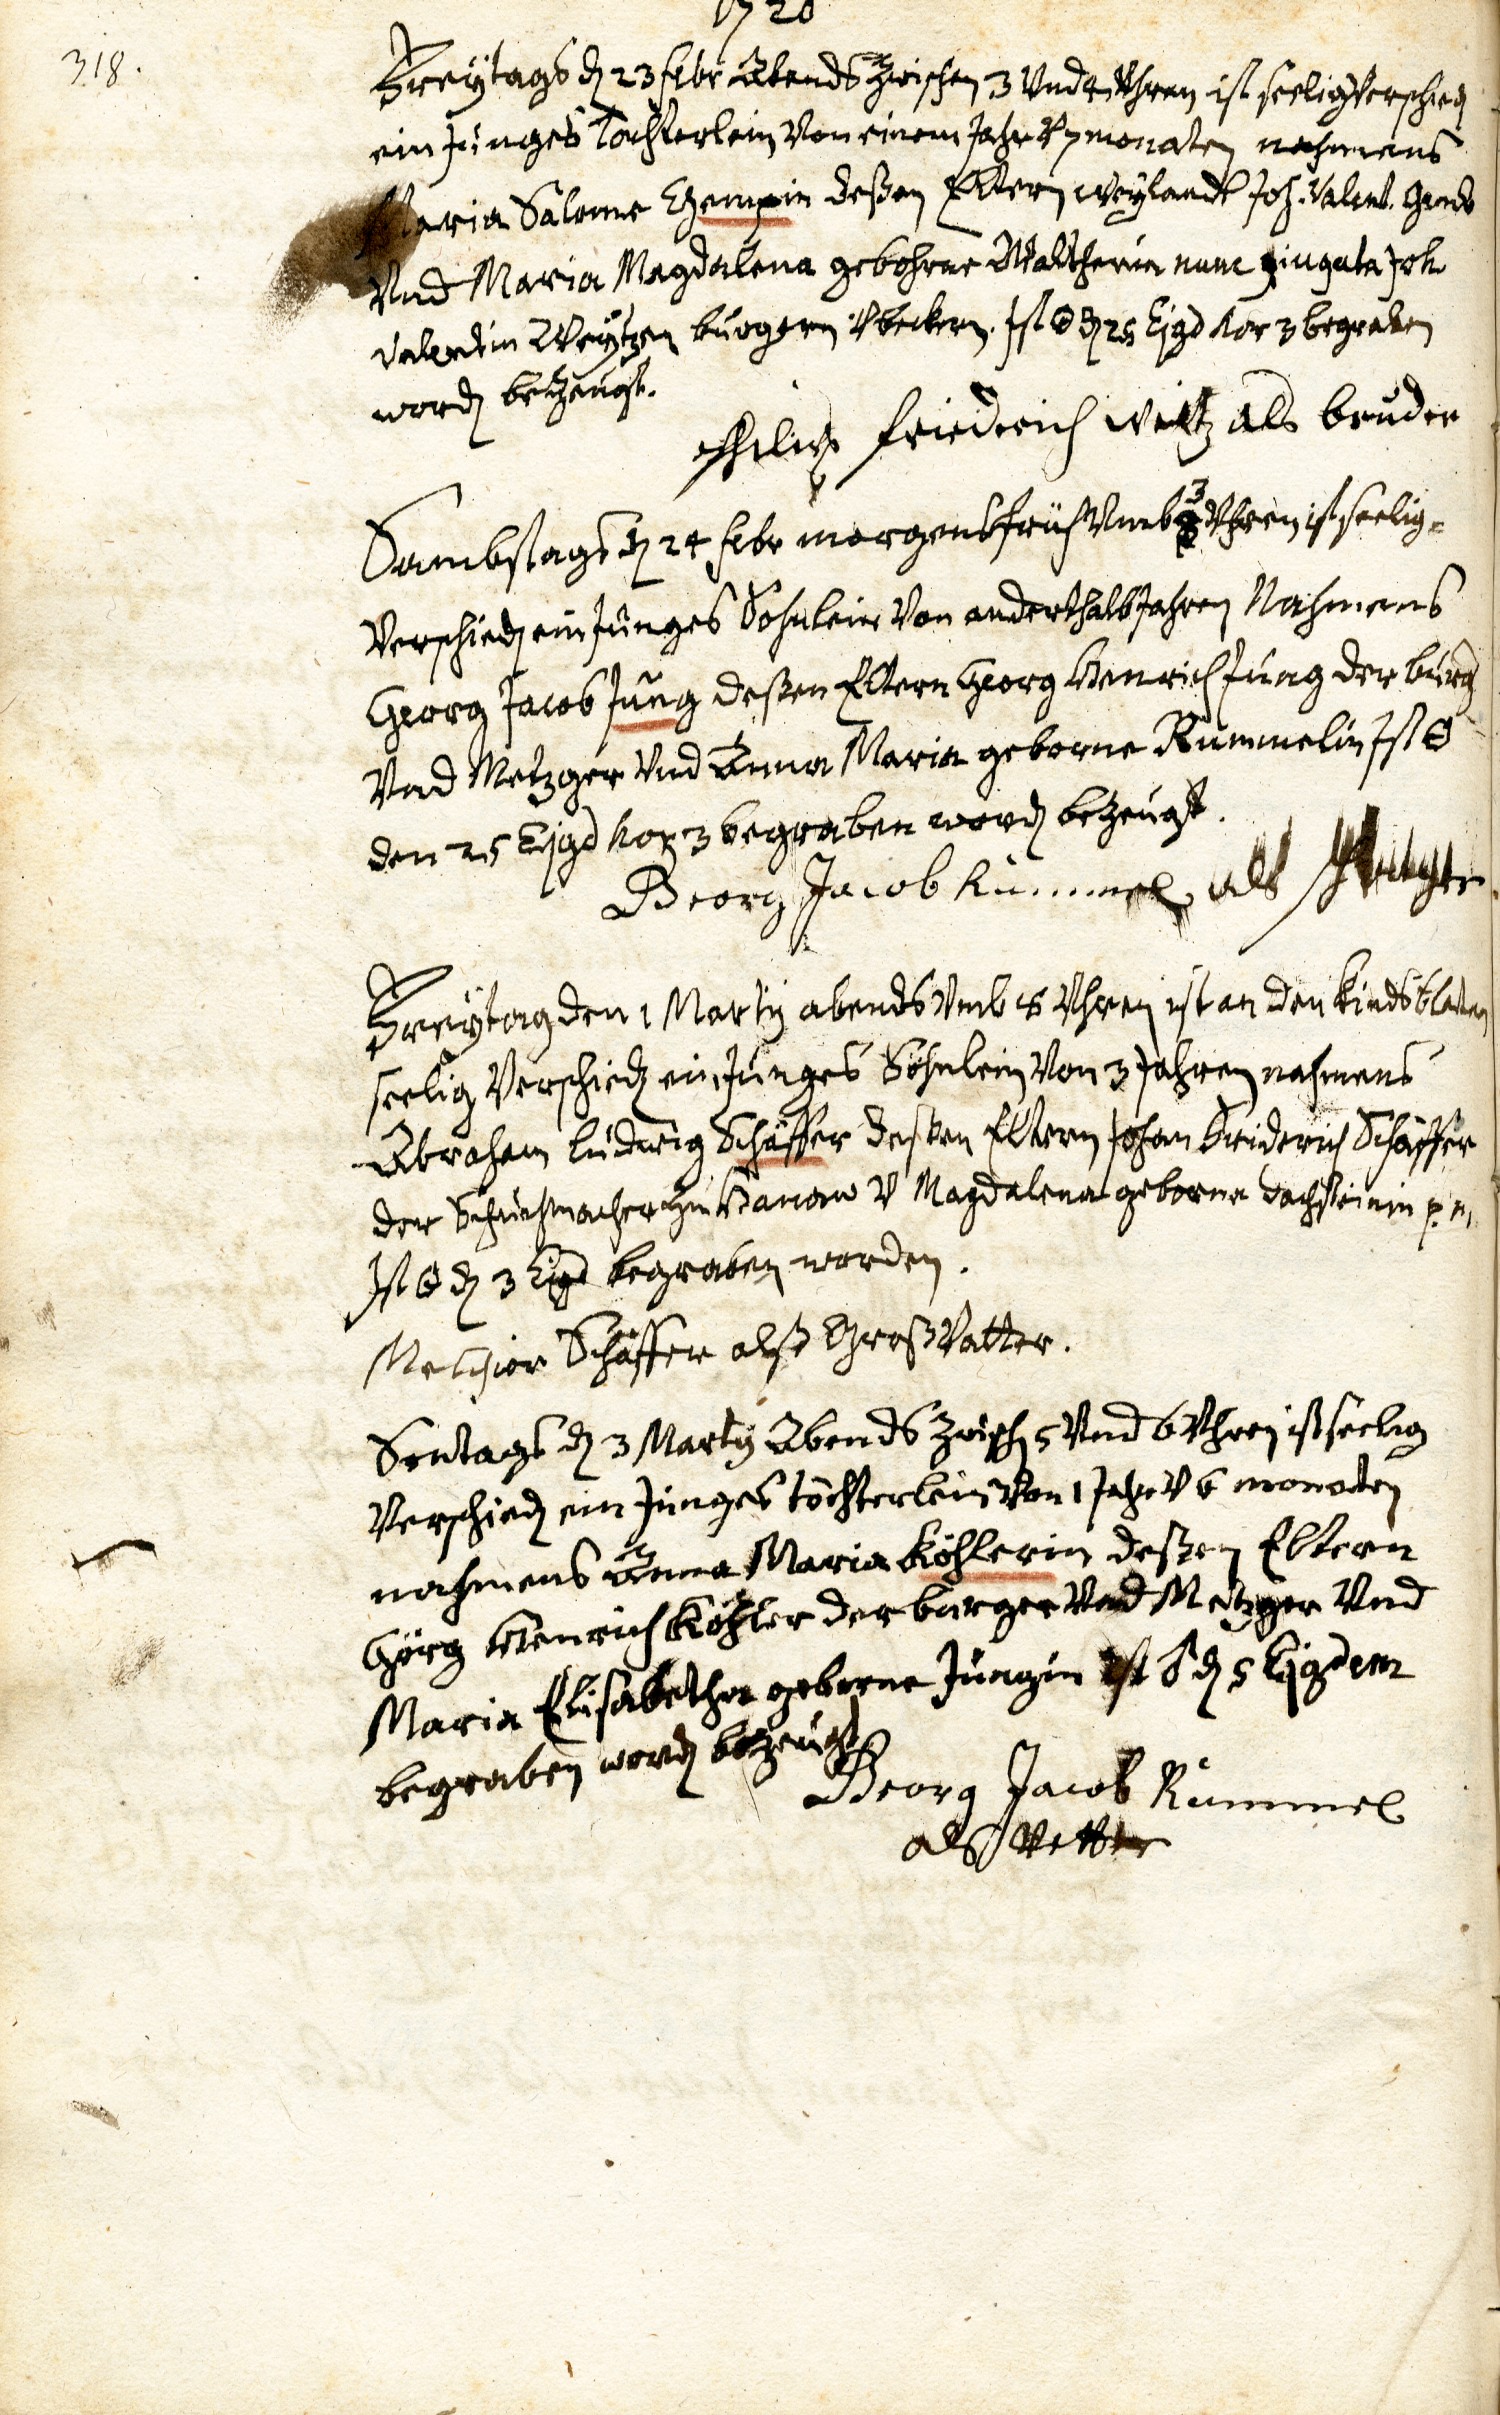 1720
318.
Freytags d 23 febr Abends Zwischen 3 Vnd 4 Uhren ist seelig Verschied
ein Junges Töchterlein Von einem Jahr V 7 monaten nahmens
Maria Salome deßen Eltern weylandt Joh. Valent.
Vnd Maria Magdalena gebohrne Waltherin nunc Joh
Valentin Weytzen burgern V beckern. Ist d 25 Ejsd hor 3 begraben
word bezeugt.
Philips friederich weitz als bruder
Sambstags d 24 febr morgens früh Vmb 3 Uhren ist seelig=
Verschied ein Junges Söhnlein Von anderthalb Jahren Nahmens
Georg Jacob Jung deßen Eltern Georg Henrich Jung der burg
Vnd Metzger Vnd Anna Maria geborne Rummelin Ist
den 25 Ejsd hor 3 begraben word bezeugt.
Georg Jacob Rümmel als
Freytag den 1 Martij abends Vmb 5 Uhren ist an den Kindsblatern
seelig Verschied ein Junges Söhnlein Von 3 Jahren nahmens
Abraham Ludwig Schäffer deßen Eltern Johan friderich Schäffer
der Schuhmacher Zu Hanaw V Magdalena geborne Dachsteinin p. m.
Ist d 3 Ejsd begraben worden.
Melchior Schäffer alß Groß Vatter.
Sontags d 3 Martij Abends Zwisch 5 Vnd 6 Uhren ist seelig
Verschied ein Junges töchterlein Von 1 Jahr V 6 monaten
nahmens Anna Maria Köhlerin deßen Eltern
Görg Henrich Köhler der burger Vnd Metzger Vnd
Maria Elisabetha geborne Jungin ist d 5 Ejsdem
begraben word bezeugt
Georg Jacob Rümmel
als Vetter